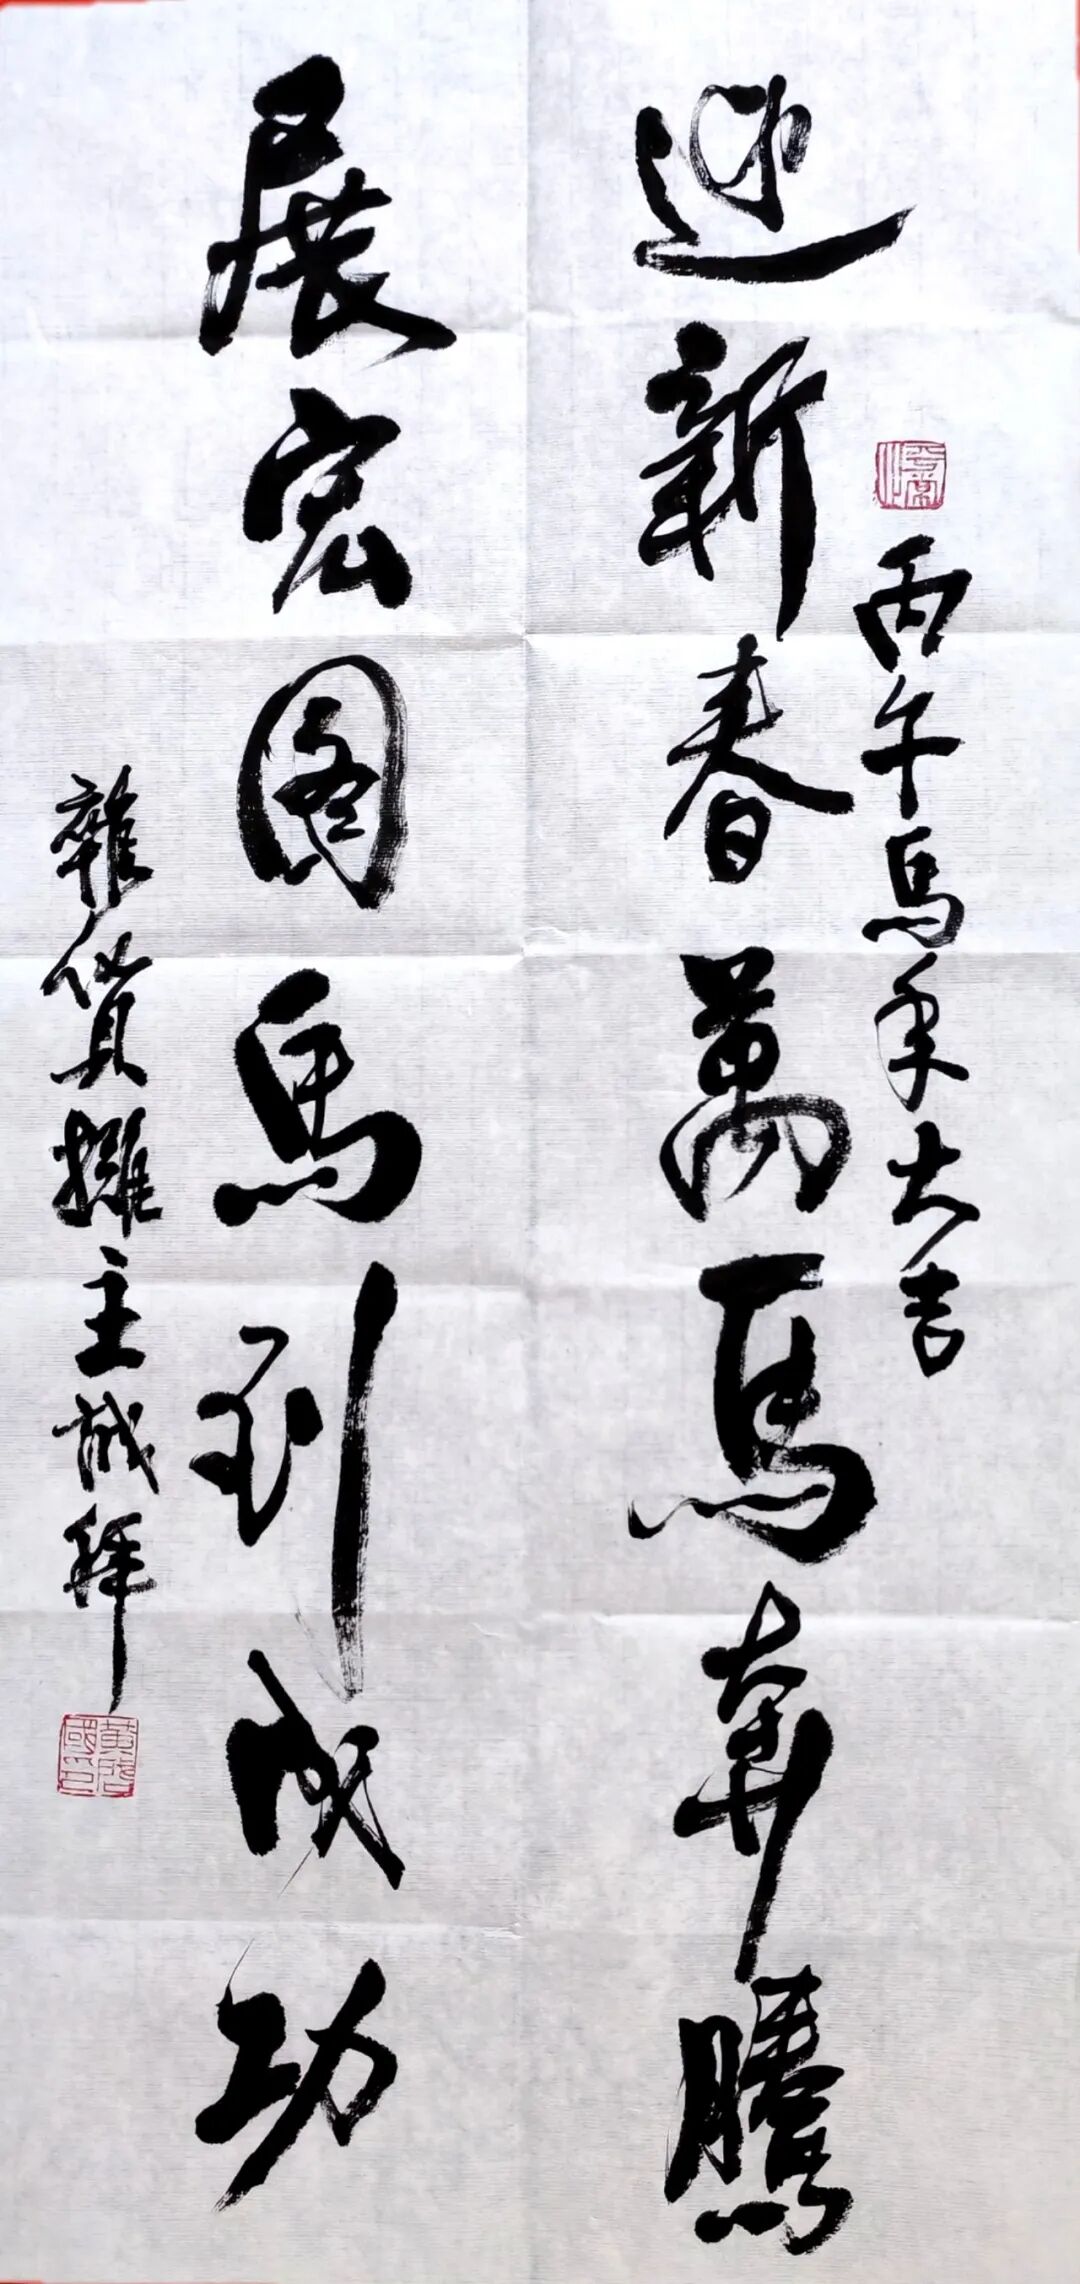 丙午馬年大吉
迎新春萬馬奔騰
展宏图馬到成功
雜貨攤主誠拜